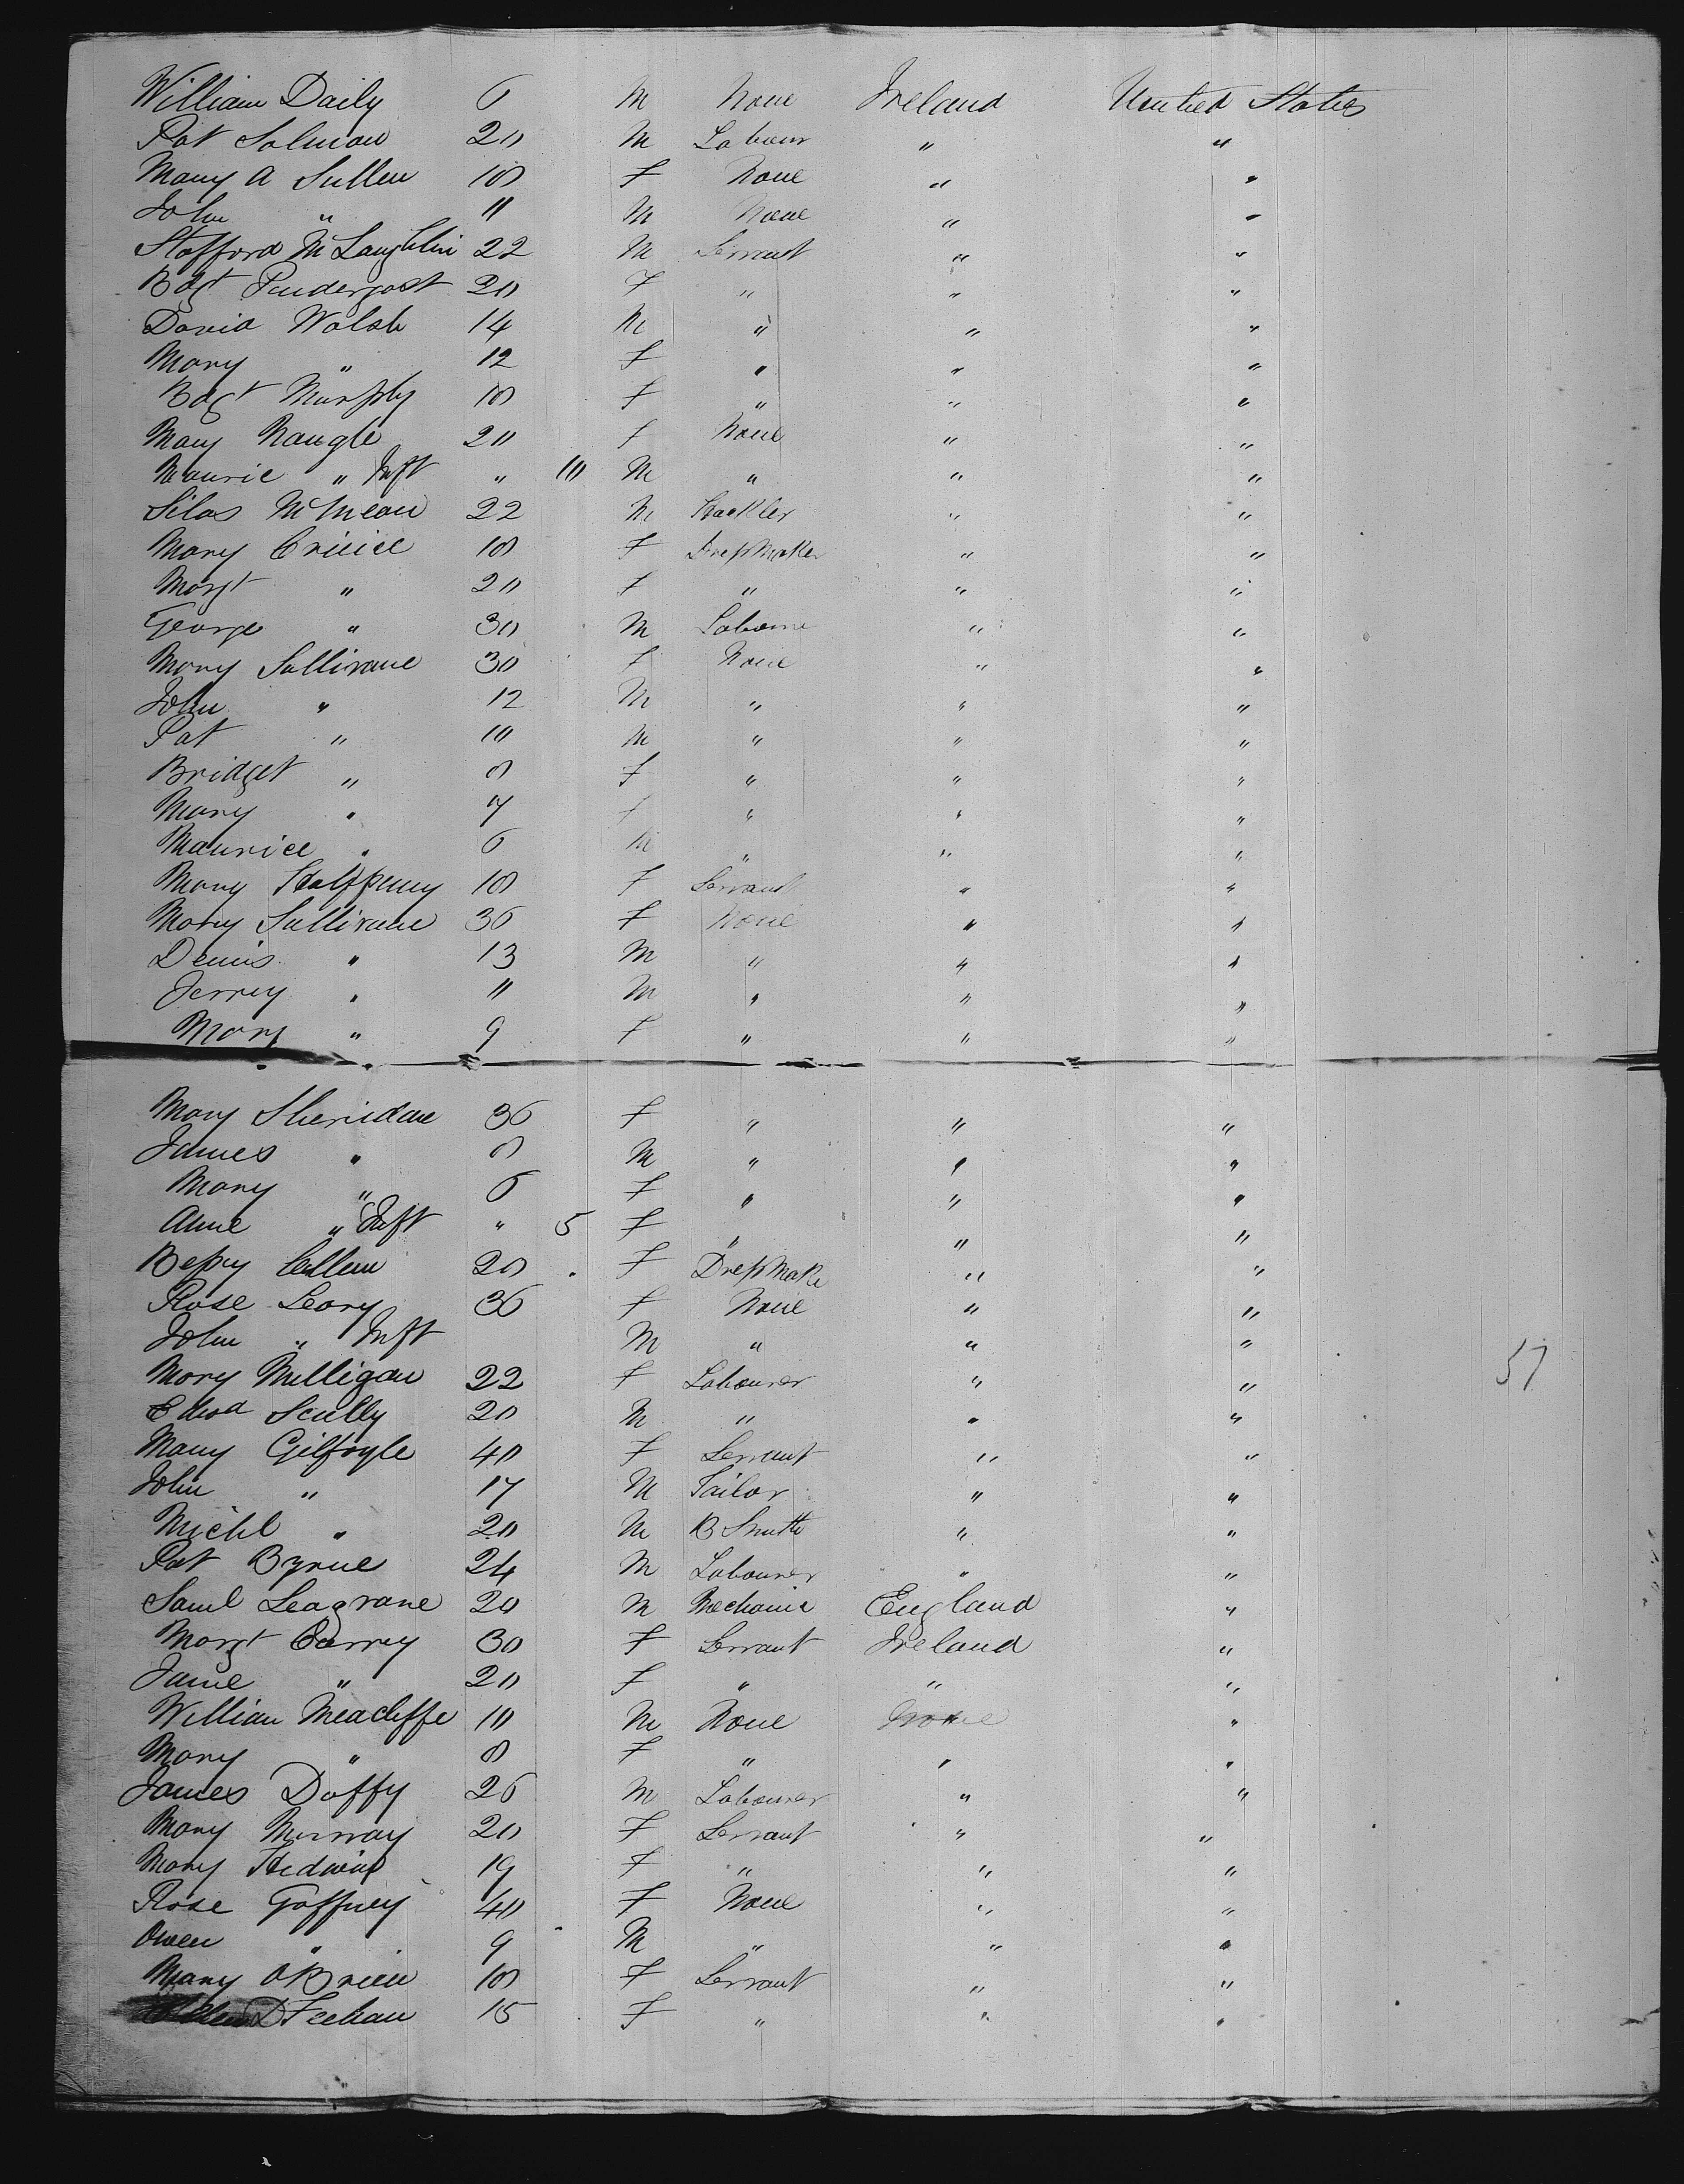 William Daily 6 M None Ireland United States
Pat Salmon 20 M Labour " "
Mary A Sullen 18 F None " "
John " 11 M None " "
Stafford McLaughlin 22 M Servant " "
Bdgt Pendergast 20 F " " "
David Walsh 14 M " " "
Mary " 12 F " " "
Bdgt Murphy 18 F " " "
Mary Naugle 20 F None " "
Maurie " Inft " 10 M " " "
Silas 22 M " "
Mary 18 F DressMaker " "
Margt " 20 F " " "
George " 30 M Laboure " "
Mary Sullivane 30 F None " "
John " 12 M " " "
Pat " 10 M " " "
Bridget " 8 F " " "
Mary " 7 F " " "
Maurice " 6 M " " "
Mary Halfpenny 18 F Servant " "
Mary Sullivane 36 F None " "
Dennis " 13 M " " "
Jerrey " 11 M " " "
Mary " 9 F " " "
Mary Sheridane 36 F " " "
James " 8 M " " "
Mary " 6 F " " "
Anne " Inft " 5 F " " "
Bessy Cullen 20 F DressMake " "
Rose Leary 36 F None " "
John " Inft M " " "
Mary Milligan 22 F Labourer " "
Edwd Scully 20 M " " "
Mary Gilfoyle 40 F Servant " "
John " 17 M Tailor " "
Michl " 20 M B Smith " "
Pat Byrne 24 M Labourer " "
Saml Seagrane 20 M Mechanic England "
Margt Carrey 30 F Servant Ireland "
Jane " 20 F " " "
William Meacliffe 10 M None None "
Mary " 8 F " " "
James Duffy 26 M Labourer " "
Mary Murray 20 F Servant " "
Mary 19 F " " "
Rose Gaffney 40 F None " "
Owen " 9 M " " "
Mary OBrien 18 F Servant " "
D Feehan 15 F " " "
57